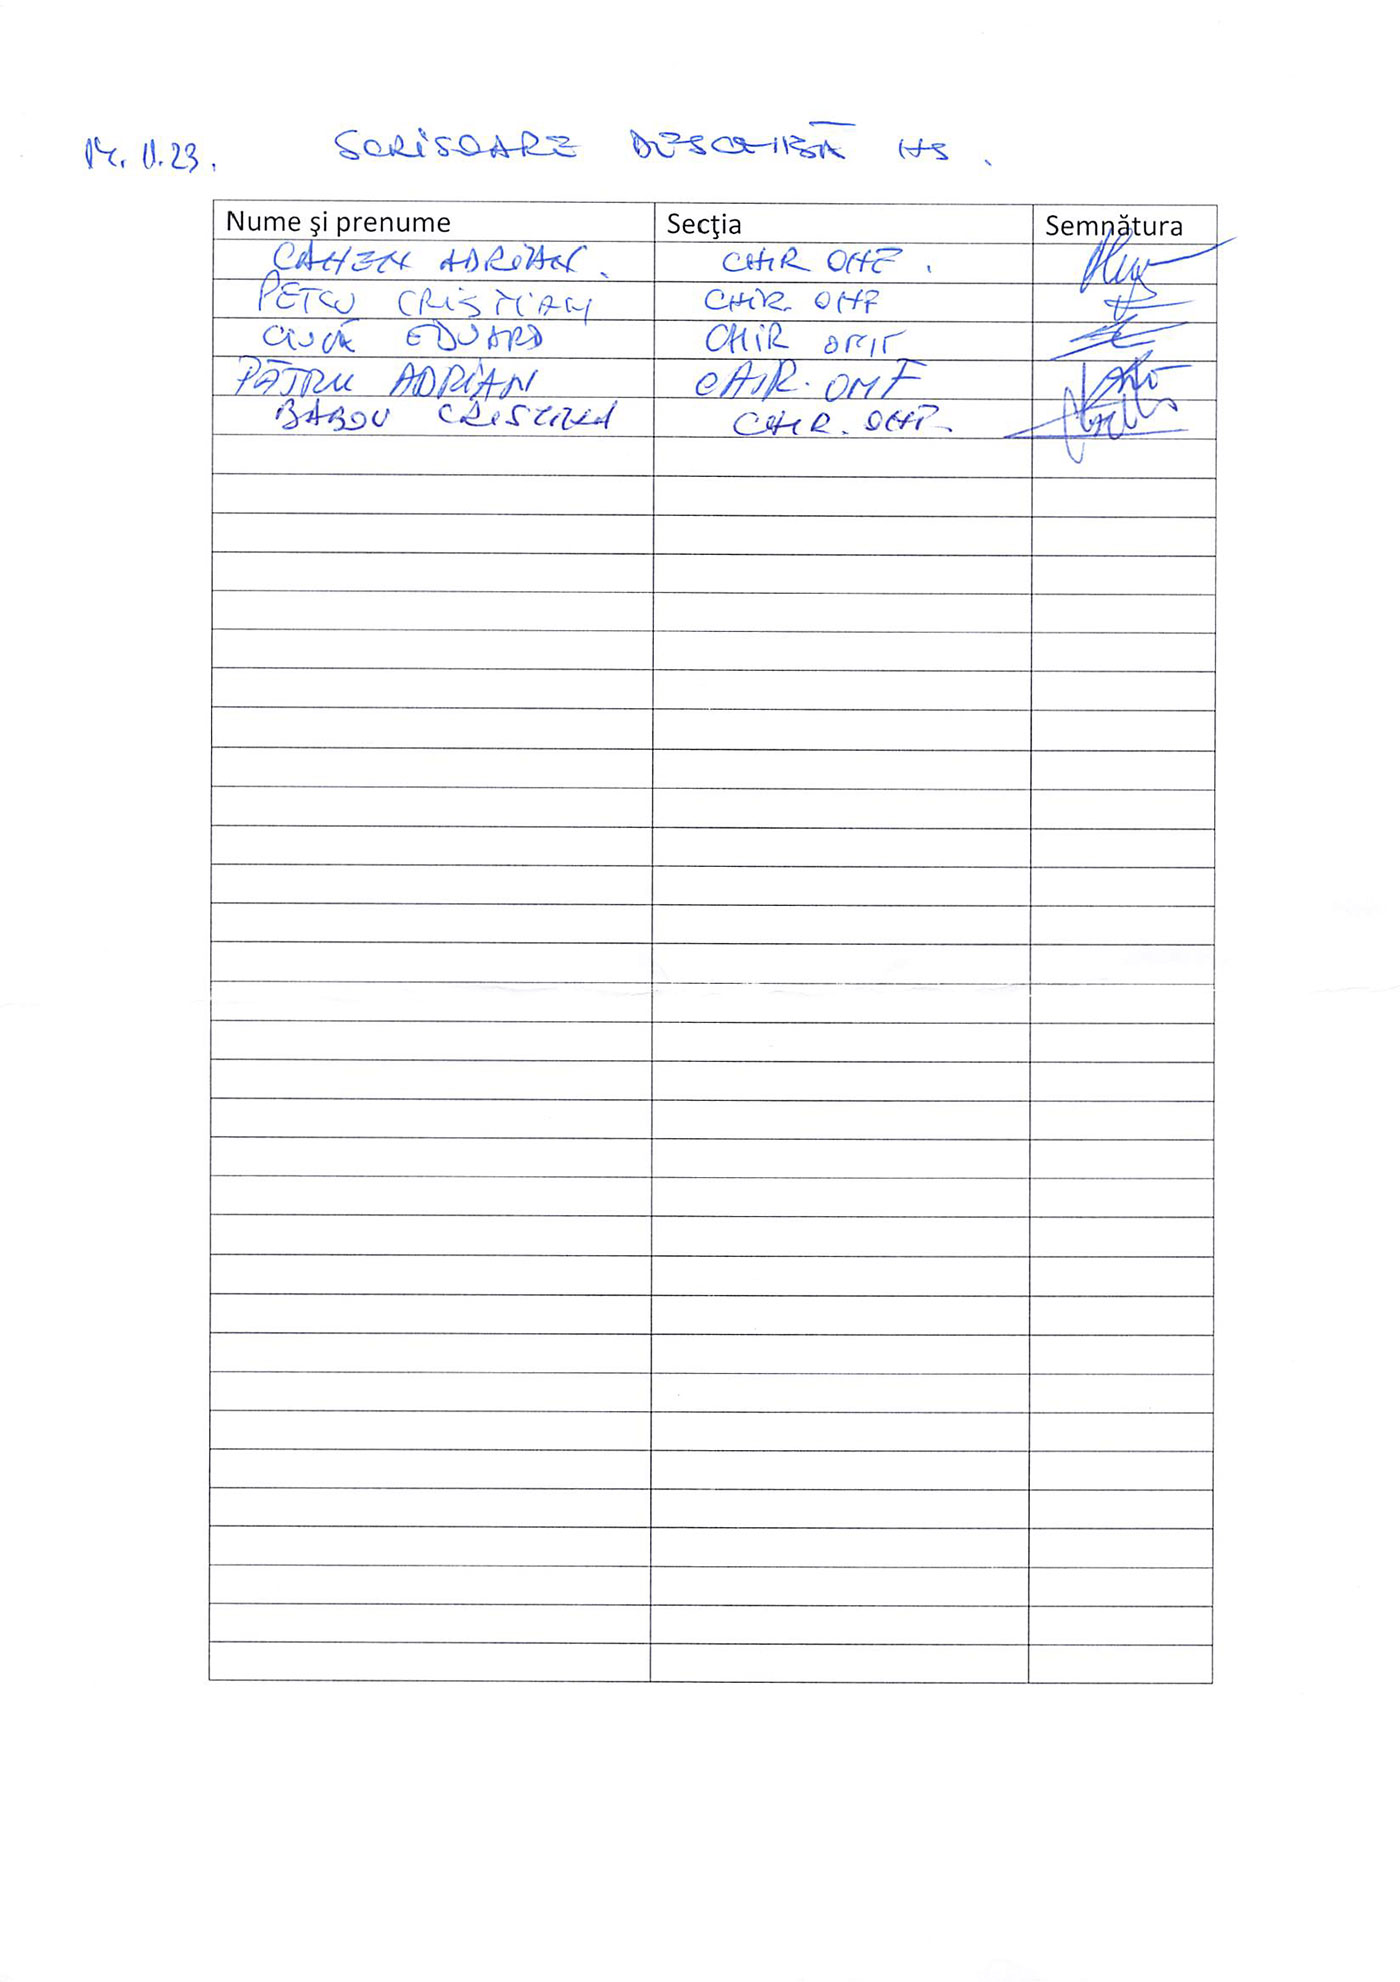 SCRISOARE DESCHISĂ MS.
Nume şi prenume Secţia Semnătura
CAMEN ADRIAN. CHIR OMF.
PETCU CRISTIAN CHIR. OMF
CIUCĂ EDUARD CHIR OMF
PĂTRU ADRIAN CHIR. OMF
BABOU CRISTINA CHIR. OMF.